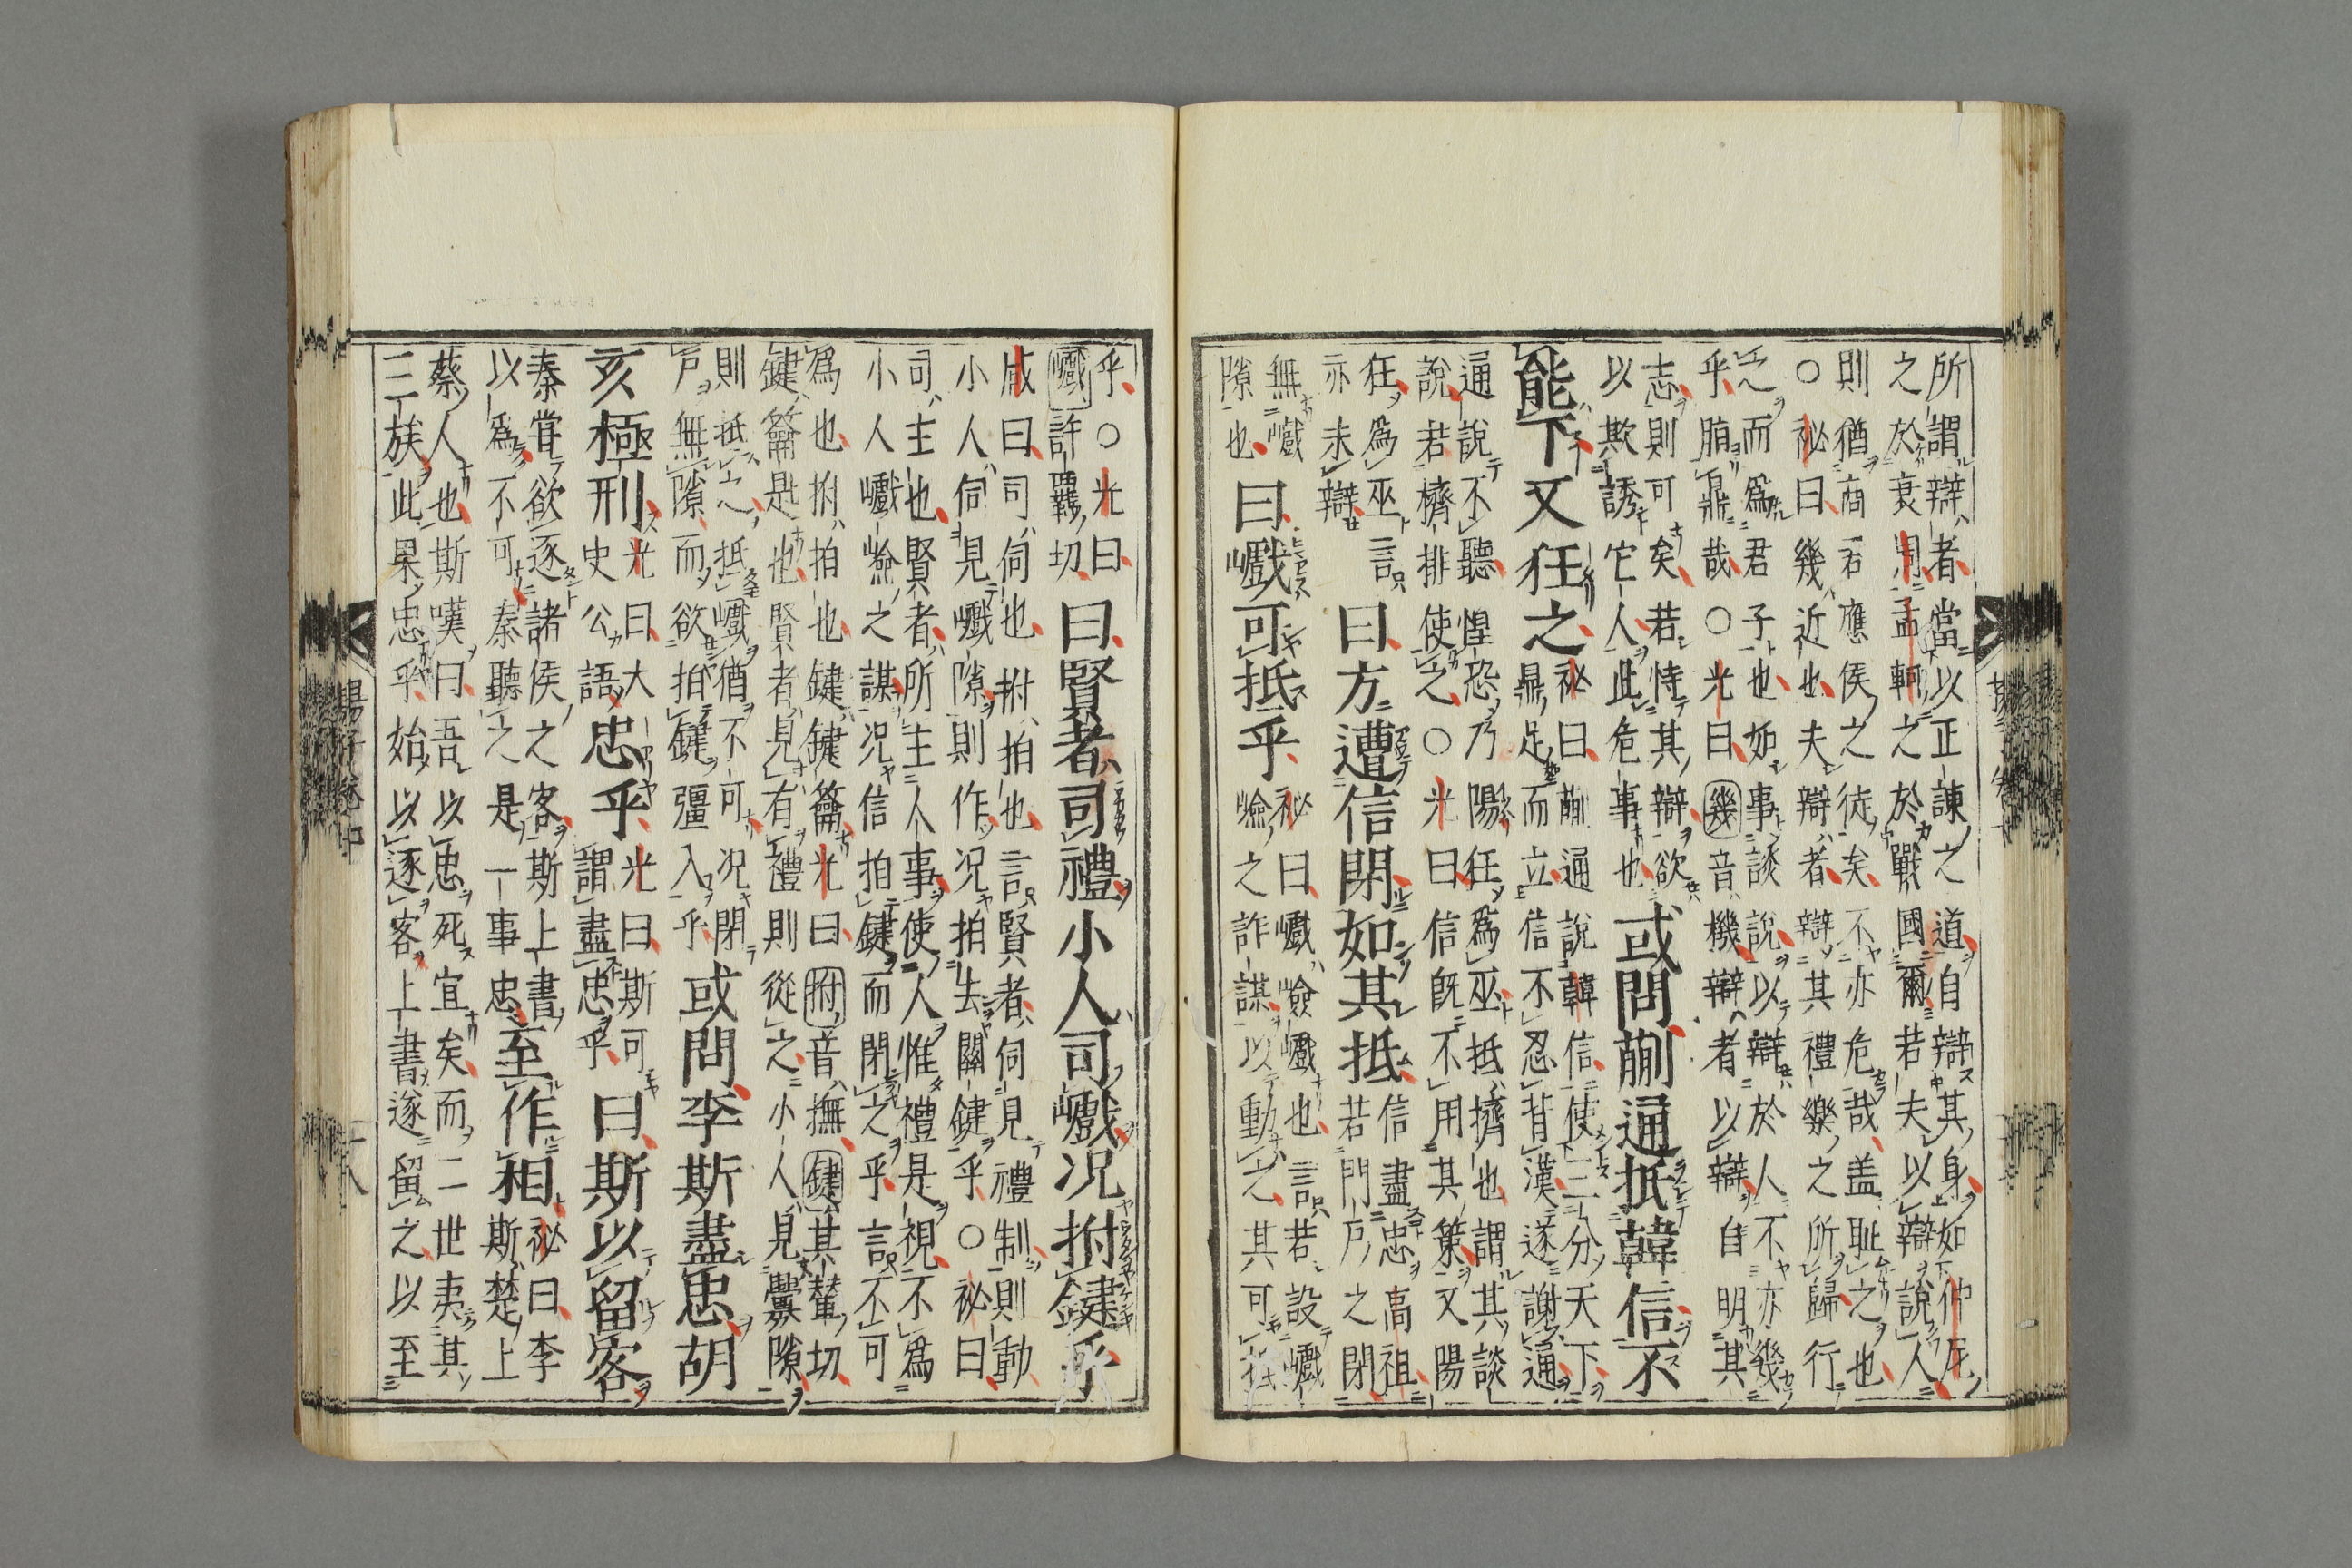 所謂辯者當以正諫之道自辯其身如仲尼
之於衰周孟軻之於戰國爾若夫以辯說人
則猶商君應侯之徒矣不亦危哉盖耻之也
○祕曰幾近也夫辯者辯其禮樂之所歸行
之而爲君子也如事談說以辯於人不亦幾
乎脜鼎哉○光曰幾音機辯者以辯自明其
志則可矣若恃其辯欲
以欺誘它人此危事也
或問蒯通抵韓信不
能下又狂之
祕曰蒯通說韓信使三分天下
鼎足而立信不忍背漢遂謝通
通說不聽惶恐乃陽狂爲巫抵擠也謂其談
說若擠排使之○光曰信旣不用其策又陽
狂爲巫言
亦未辯
曰方遭信閉如其抵
信盡忠高祖
若門戶之閉
無巇
隙也
曰巇可抵乎
祕曰巇險巇也言若設巇
嶮之詐謀以動之其可抵
乎○光曰
巇許羈切
曰賢者司禮小人司巇况拊鍵乎
咸曰司伺也拊拍也言賢者伺見禮制則動
小人伺見巇隙則作况拍去關鍵乎○祕曰
司主也賢者所主人事使人惟禮是視不爲
小人巇嶮之謀况信拍鍵而閉之乎言不可
爲也拊拍也鍵鍵籥光曰拊音撫鍵其輦切
鍵籥是也賢者見有禮則從之小人見釁隙
則抵之抵巇猶不可况閉
戶無隙而欲拍鍵彊入乎
或問李斯盡忠胡
亥極刑
光曰大
史公語
忠乎
光曰斯可
謂盡忠乎
曰斯以留客
秦嘗欲逐諸侯之客斯上書
以爲不可秦聽之是一事忠
至作相
祕曰李
斯楚上
蔡人也斯嘆曰吾以忠死宜矣而二世夷其
三族此果忠乎始以逐客上書遂留之以至
楊子卷中
十八